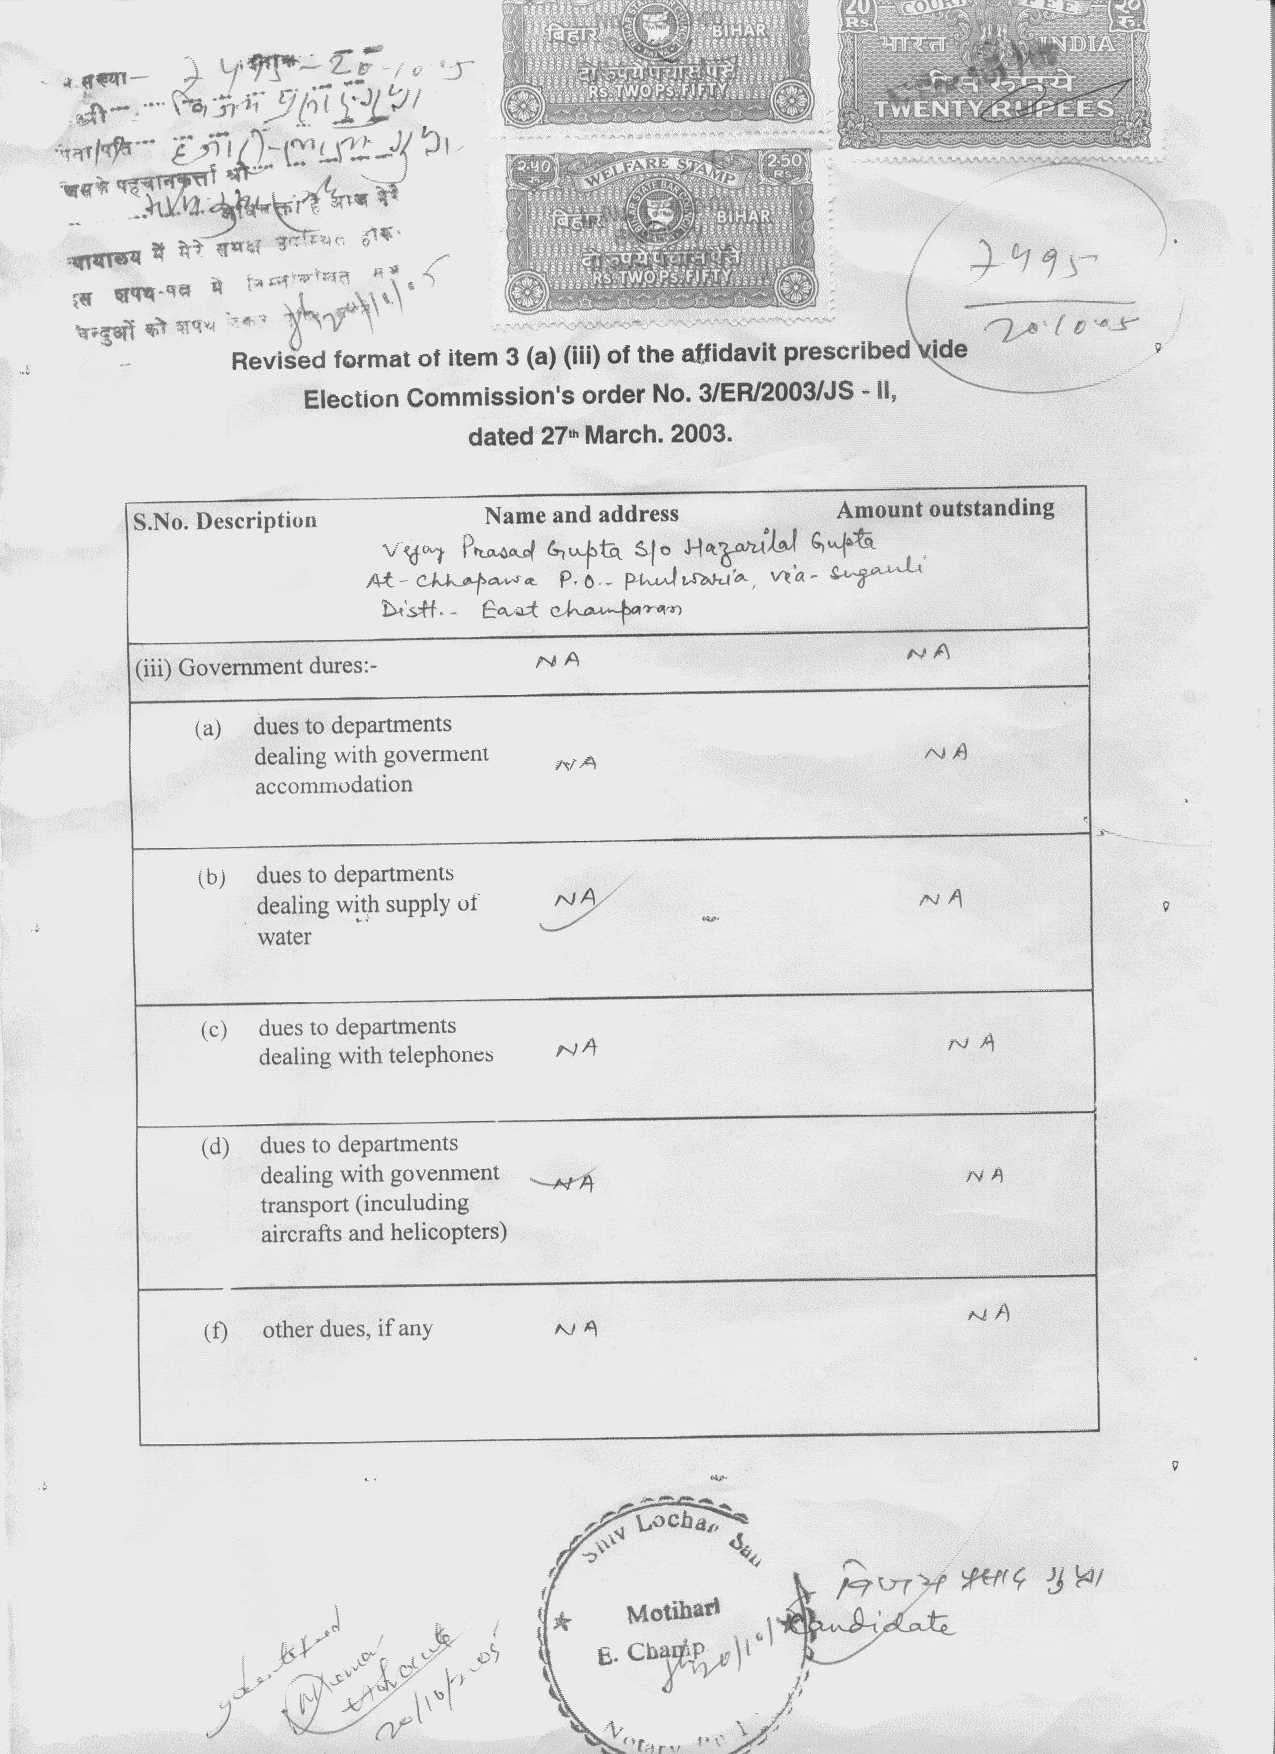 बिहार BIHAR
दो रुपये पचास पैसे
RS. TWO Ps. FIFTY
20 Rs. COURT FEE २० रु.
भारत INDIA
बीस रुपये
TWENTY RUPEES
संख्या— 7495 — 20-10-05
श्री
विजय प्रसाद गुप्ता
पिता/पति
हजारी लाल गुप्ता
जिसके पहचानकर्ता श्री
अधिवक्ता हैं आज मेरे
न्यायालय में मेरे समक्ष उपस्थित होकर
इस शपथ-पत्र में निम्नलिखित
बिन्दुओं को शपथ लेकर
2.50 WELFARE STAMP 2.50 Rs.
बिहार BIHAR
दो रुपये पचास पैसे
RS. TWO Ps. FIFTY
7495
20.10.05
Revised format of item 3 (a) (iii) of the affidavit prescribed vide
Election Commission's order No. 3/ER/2003/JS - II,
dated 27th March. 2003.
S.No. Description Name and address Amount outstanding
Vejay Prasad Gupta S/o Hazarilal Gupta
At- Chhapawa P.O.- Phulwaria, via- Suganli
Distt.- East champaran
(iii) Government dures:- NA NA
(a) dues to departments
dealing with goverment
accommodation NA NA
(b) dues to departments
dealing with supply of
water NA NA
(c) dues to departments
dealing with telephones NA NA
(d) dues to departments
dealing with govenment
transport (inculuding
aircrafts and helicopters) NA NA
(f) other dues, if any NA NA
Shiv Lochan
Motihari
E. Champ
20/10/
Notary
विजय प्रसाद गुप्ता
Candidate
20/10/2005